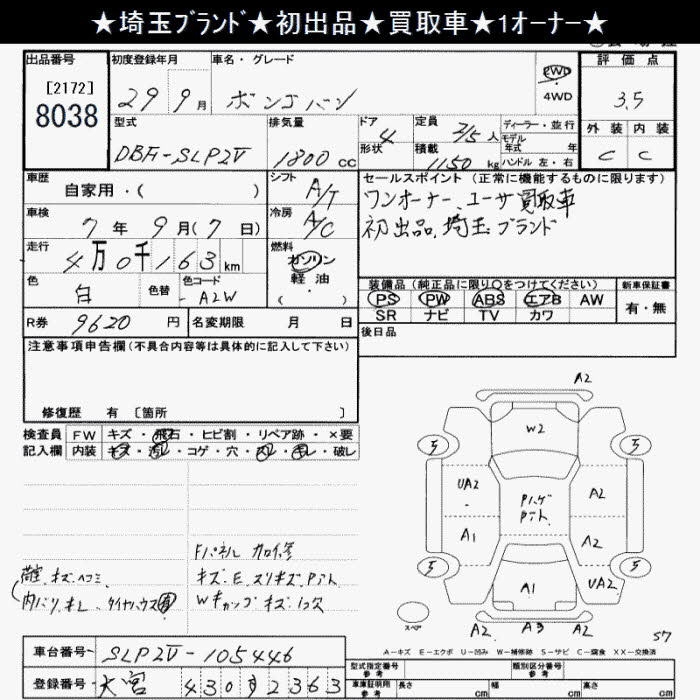 ★埼玉ブランド★初出品★買取車★1オーナー★
出品番号
[2172]
8038
初度登録年月
29 9月
車名・グレード
ボンゴバン
2WD
4WD
評価点
3.5
型式
DBF-SLP2V
排気量
1800 cc
ドア
4
形状
定員
2/5人
積載
1150 kg
ディーラー・並行
モデル
年式 年
ハンドル 左・右
外装 内装
C C
車歴
自家用・( )
シフト
A/T
セールスポイント (正常に機能するものに限ります)
ワンオーナー、ユーザ買取車
初出品、埼玉ブランド
車検
7年 9月(7日)
冷房
A/C
走行
4万0千163km
燃料
ガソリン
軽油
( )
色
白
色替
色コード
-A2W
装備品(純正品に限り○をつけてください)
PS PW ABS エアB AW
SR ナビ TV カワ
新車保証書
有・無
R券 9620円
名変期限 月 日
後日品
注意事項申告欄(不具合内容等は具体的に記入して下さい)
修復歴 有 [箇所 ]
検査員
記入欄
FW キズ・飛石・ヒビ割・リペア跡・×要
内装 キズ・汚レ・コゲ・穴・スレ・キレ・破レ
Fパネル
荷室、キズ、ヘコミ
キズ・E、スリキズ、Pアト
内バリキレ、タイヤハウス
Wキャップ キズ
A2
W2
5
5
UA2
Pハゲ
Pアト
A2
A1
A2
5
5
A1
UA2
スペア
A2 A3 A2
57
A-キズ E-エクボ U-凹ミ W-補修跡 S-サビ C-腐食 XX-交換済
車台番号 SLP2V-105446
登録番号 大宮 430 す 2363
型式指定番号
参考
類別区分番号
参考
車庫証明用
参考
長さ cm
幅 cm
高さ cm